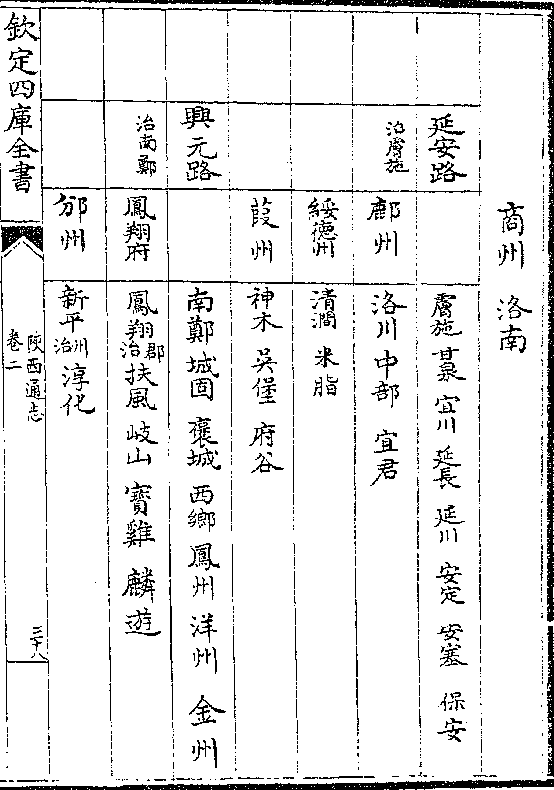 商州 洛南
延安路 膚施 甘泉 宜川 延長 延川 安定 安塞 保安
治膚施 鄜州 洛川 中部 宜君
綏德州 清澗 米脂
葭州 神木 吳堡 府谷
興元路 南鄭 城固 褒城 西鄉 鳳州 洋州 金州
治南鄭 鳳翔府 鳳翔郡治 扶風 岐山 寶雞 麟遊
邠州 新平州治 淳化
欽定四庫全書
陜西通志
卷二
三十八